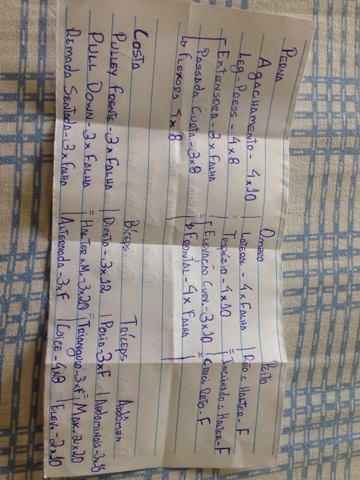 Perna
Agachamento - 4x10
Leg-Press - 4x8
Extensora - 3x Falha
Passada Curta - 3x8
Flexora 4x8
Ombro
Lateral - 4x Falha
Trapézio - 4x10
Elevação - 3x10
Frontal - 4x Falha
Peito
Reto = Halter - F
Inclinado = Halter - F
Reto - F
Costa
Pulley Frente - 3x Falha
Pull Down - 3x Falha
Remada Sentada - 3x Falha
Bíceps
Direto - 3x12
Halter - 3x20
Alternada - 3xF
Tríceps
Polia - 3xF
Triangulo - 3xF
Coice - 4x8
Abdômen
Abdominal - 3x
Max - 2x20
Elev - 2x10